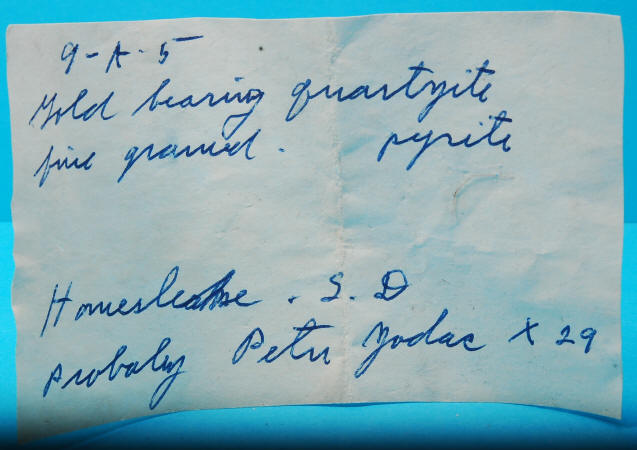 9-A-5
Gold bearing quartzite
fine grained. pyrite
Homestake. S.D
Probaly Peter Zodac X 29